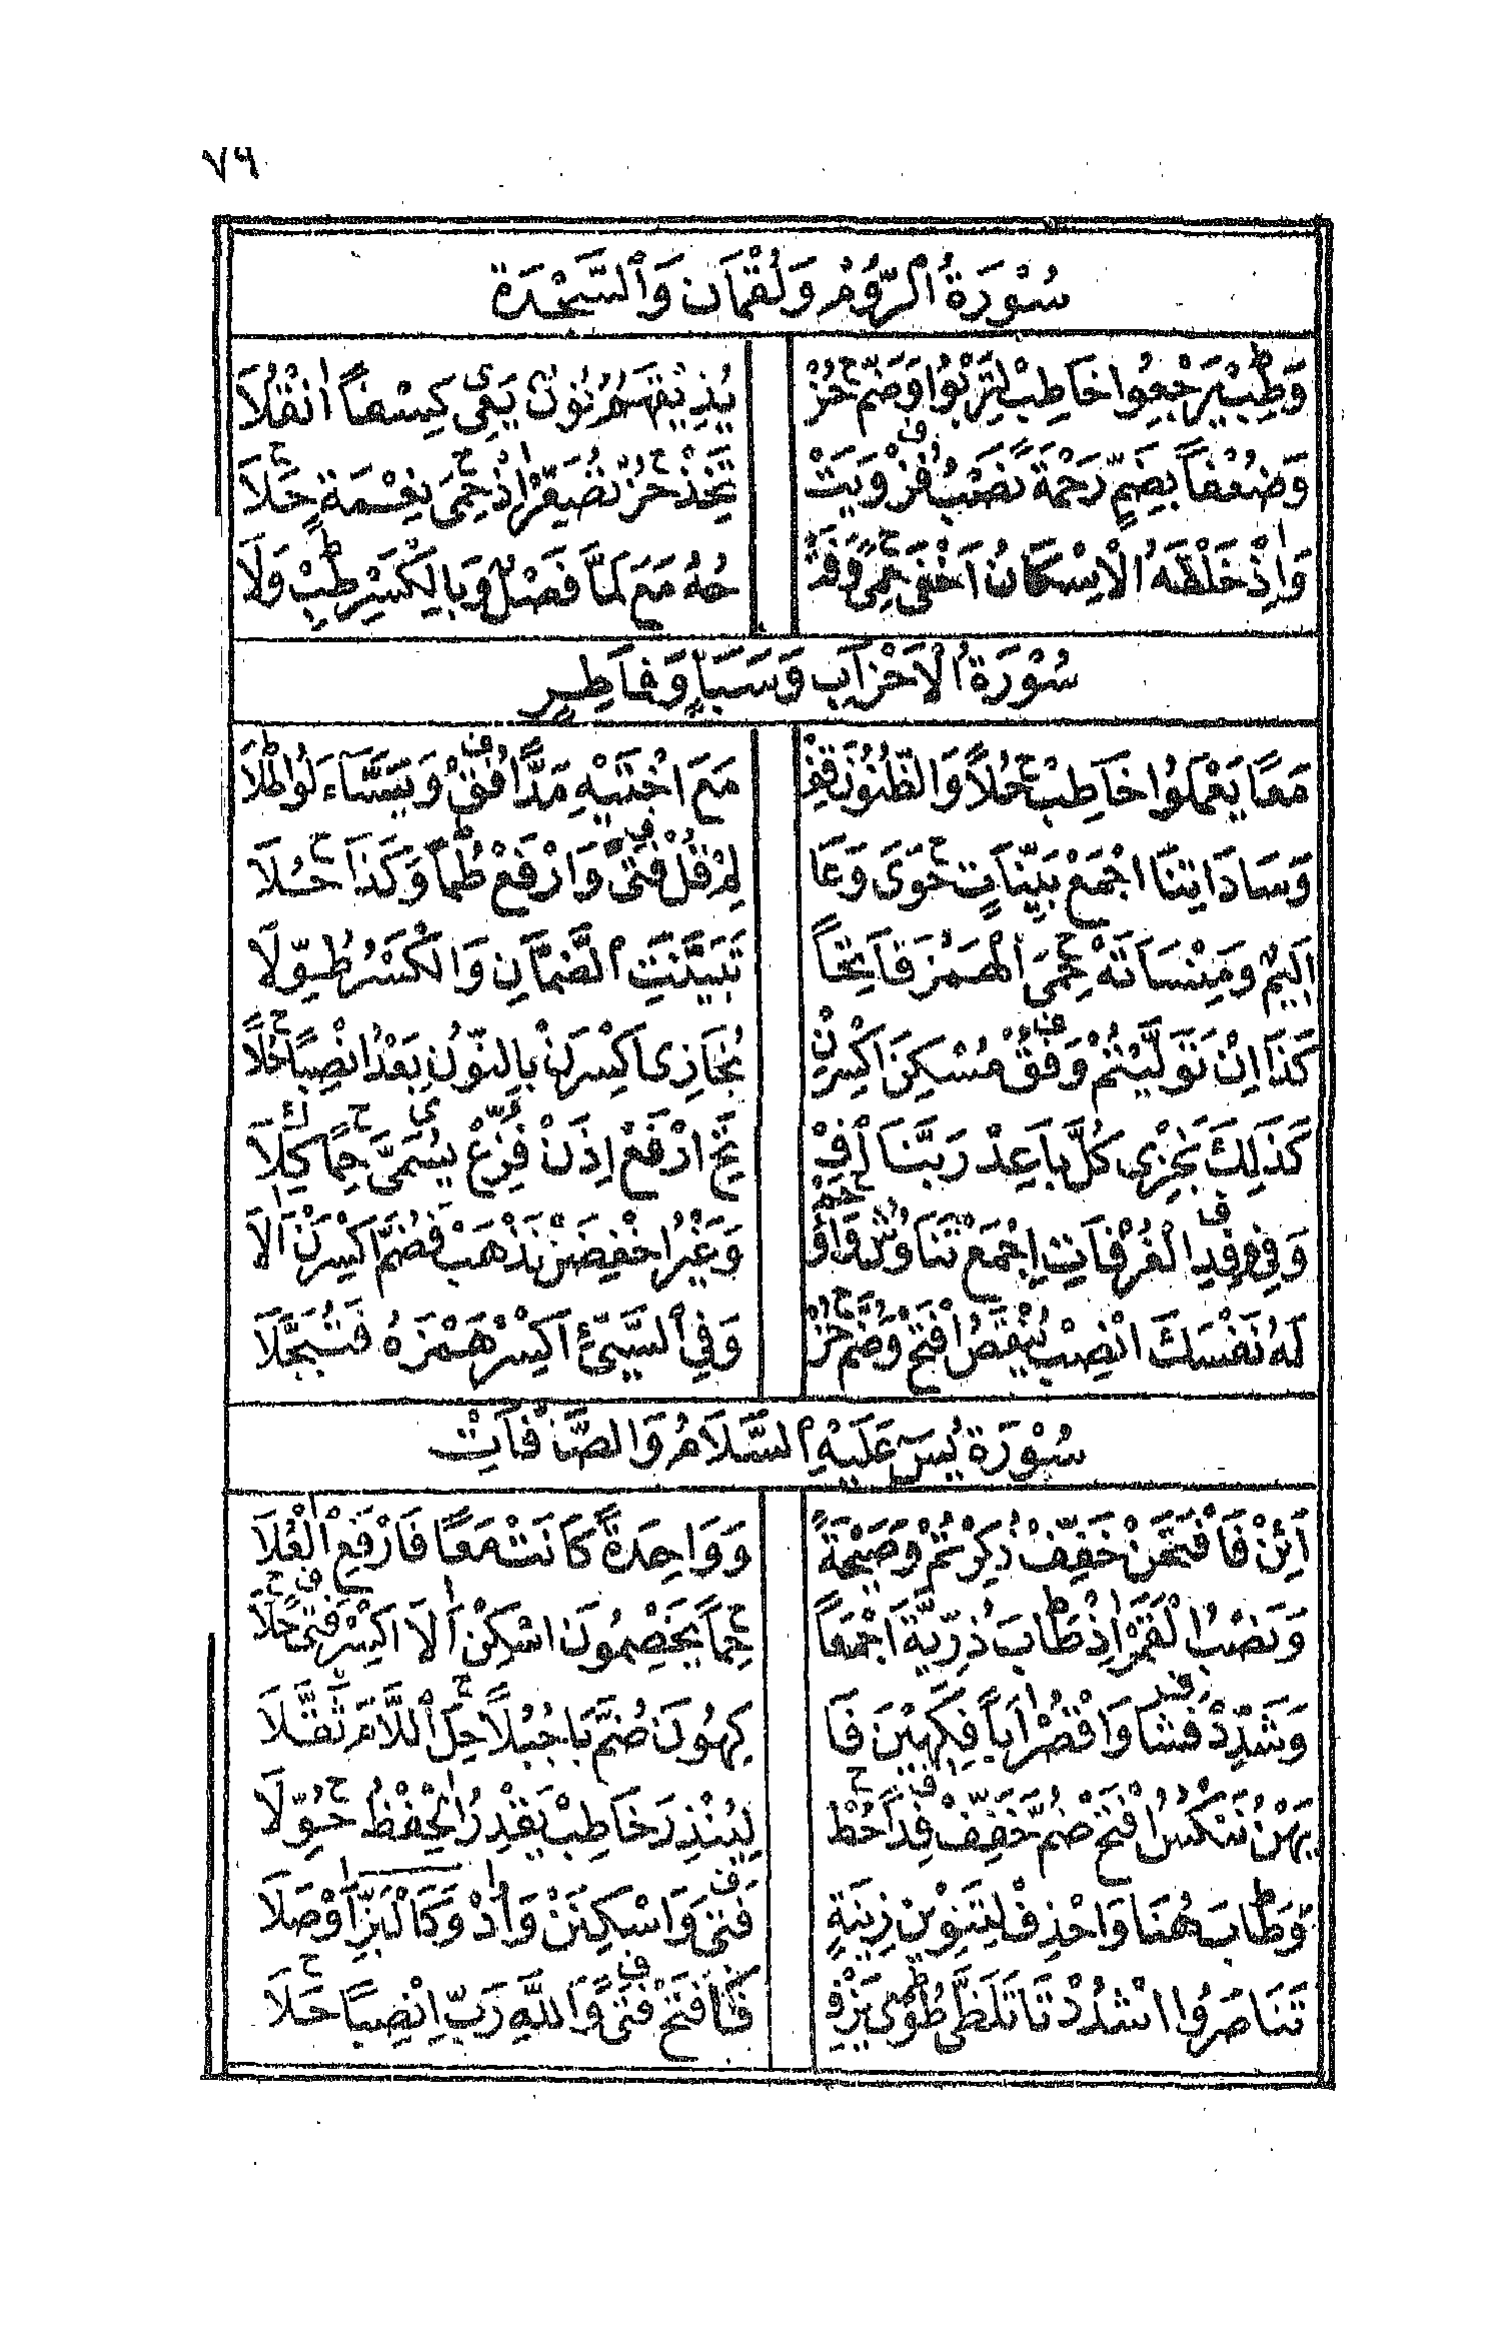 ٧٩
سُوْرَةُ الرُّوْمِ وَلُقْمَانَ وَالسَّجْدَةِ
وَطِبْ يَرْجِعُوا خَاطِبْ لِتَرْبُوا وَضَمَّ حُزْ يُذِيْقَهُمُ نُوْنٌ يَعِي كِسْفًا انْقُلَا
وَضُعْفًا بِضَمٍّ رَحْمَةً نَصْبُ فُزْ وَيَتْ تَخِذْ حُزْ تُصَعِّرْ إِذْ حِمَى نِعْمَةً حَلَا
وَإِذْ خَلْقَهُ الْإِسْكَانُ أُخْفِيْ حِمًى وَفَتْ حُهُ مَعَ لَمَّا فَصْلٌ وَبِالْكَسْرِ طِبْ وَلَا
سُوْرَةُ الْأَحْزَابِ وَسَبَإٍ وَفَاطِرٍ
مَعًا يَعْمَلُوا خَاطِبْ حُلًا وَالظُّنُوْنَ قِفْ مَعَ اخْتَيْهِ مَدًّا فُقْ وَيَسَّاءَلُوا طُلَا
وَسَادَاتِنَا اجْمَعْ بَيِّنَاتٍ حَوَى وَعَا لِمِ قُلْ فَتًى وَارْفَعْ طَمَا وَكَذَا حُلَا
أَلِيْمٌ وَمِنْسَأَتَهْ حِمَى الْهَمْزَ فَاتِحًا تَبَيَّنَتِ الضَّمَّانِ وَالْكَسْرُ طُوِّلَا
كَذَا إِنْ تَوَلَّيْتُمْ وَفُقْ مَسْكِنَ اكْسِرَنْ نُجَازِي اكْسِرَنْ بِالنُّوْنِ بَعْدُ انْصِبًا حَلَا
كَذٰلِكَ نَجْزِيْ كُلَّ بَاعِدْ رَبَّنَا افْ تَحِ ارْفَعْ أُذِنْ فُزِّعْ يُسَمَّى حِمًا كِلَا
وَفِي الْغُرْفَاتِ اجْمَعْ تَنَاوُشُ وَاوَ غَيْرُ اخْفِضَنْ تَذْهَبْ فَضُمَّ اكْسِرَنْ أَلَا
لَهُ نَفْسُكَ انْصِبْ يُنْقَصُ افْتَحْ وَضُمَّ حُزْ وَفِي السَّيِّئْ اكْسِرْ هَمْزَهُ فَتُبَجَّلَا
سُوْرَةُ يٰسٓ عَلَيْهِ السَّلَامُ وَالصَّافَّاتِ
أَئِنْ فَافْتَحَنْ خَفِّفْ ذُكِرْتُمْ وَصَيْحَةً وَوَاحِدَةً كَانَتْ مَعًا فَارْفَعِ الْعُلَا
وَنَصْبُ الْقَمَرْ إِذْ طَابَ ذُرِّيَّةَ اجْمَعًا حِمًا يَخْصِمُونَ اسْكِنْ أَلَا اكْسِرْ فَتًى حَلَا
وَشَدِّدْ فَشَا وَاقْصُرْ أَبًا فَكِهِيْنَ فَا كِهُونَ ضُمَّ بَا جُبُلًا حَلَا اللَّامَ ثَقَّلَا
بِهِنْ نَنْكُسُ افْتَحْ ضُمَّ خَفِّفْ فِدًا حُطْ لِيُنْذِرَ خَاطِبْ يَقْدِرُ الْحِقْفُ حُوِّلَا
وَطَابَ هُنَا وَاحْذِفْ لِتَنْوِيْنِ زِيْنَةٍ فَتًى وَاسْكِنَنْ أَوْ أُدْ وَكَالْبَزِّ أَوْصِلَا
تَنَاصَرُوا اشْدُدْ تَا تَلَظَّى طُوًى يَزِفْ فُ فَافْتَحْ فَتًى وَاللّٰهُ رَبُّ انْصِبًا حَلَا